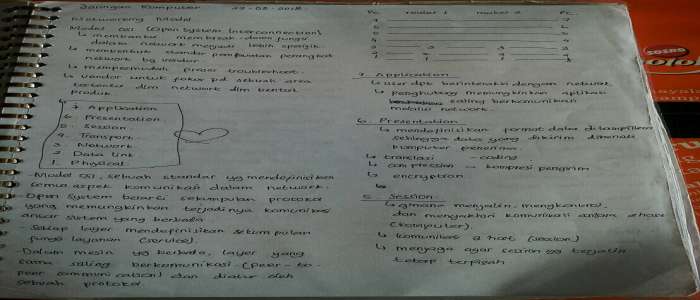 Jaringan Komputer
Networking Model
Model OSI (Open System Interconnection)
↳ membantu memecah dalam fungsi
dalam network menjadi lebih spesifik.
↳ membentuk standar pembuatan perangkat
network by vendor
↳ mempermudah proses troubleshoot.
↳ vendor untuk fokus pd sebuah area
tertentu dlm network dlm bentuk
Produk
7. Application
6. Presentation
5. Session
4. Transport
3. Network
2. Data link
1. Physical.
- Model OSI, sebuah standar yg mendefinisikan
semua aspek komunikasi dalam network.
- Open System berarti sekumpulan protokol
yang memungkinkan terjadinya komunikasi
antar sistem yang berbeda
- Setiap layer mendefinisikan sekumpulan
fungsi layanan (service).
- Dalam mesin yg berbeda, layer yang
sama saling berkomunikasi (peer-to-
peer communication) dan diatur oleh
sebuah protokol
router 1 router 2
7 7
6
5
4
3 3
2 2
1 1
7. Application
↳ user dpt berinteraksi dengan network
↳ penghubung memungkinkan aplikasi
saling berkomunikasi
melalui network.
6. Presentation
↳ mendefinisikan format data ditampilkan
sehingga data yang dikirim dikenali
komputer penerima.
↳ translasi - coding
↳ compression - kompresi pengirim
↳ encryption.
5. Session
↳ gimana menjalin, mengkontrol,
dan mengakhiri komunikasi antara 2 host
(komputer).
↳ komunikasi 2 host (session)
↳ menjaga agar session yg terjalin
tetap terpisah